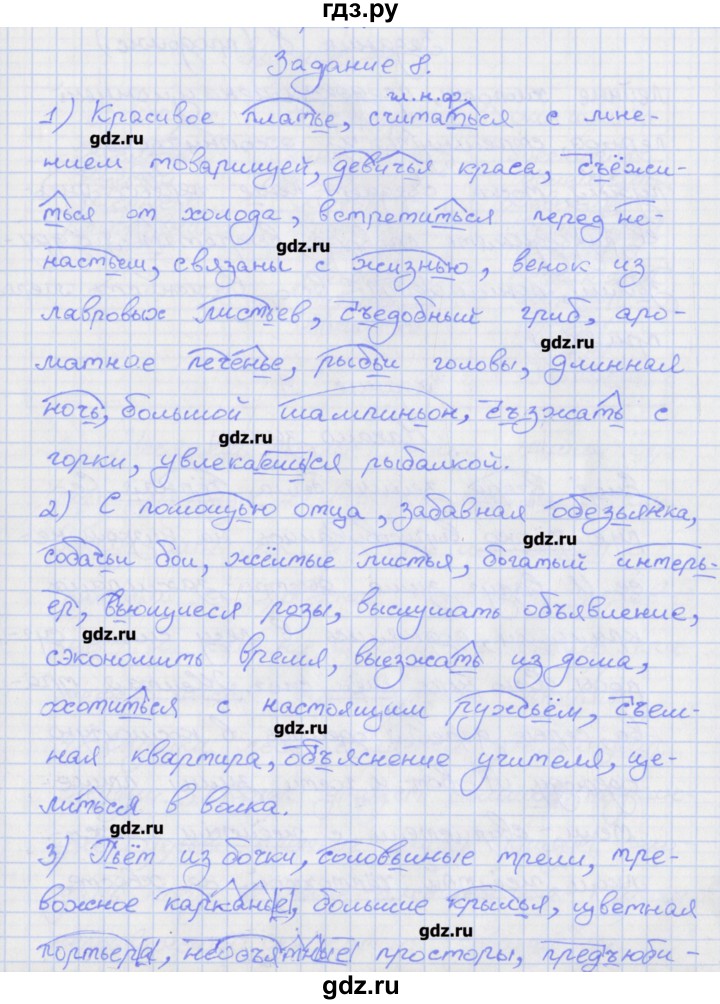 гдз.ру
Задание 8.
гл. н.ф.
1) Красивое платье, считаться с мне-
гдз.ру
нием товарищей, девичья краса, съёжи-
ться от холода, встретиться перед не-
гдз.ру
настьем, связаны с жизнью, венок из
лавровых листьев, съедобный гриб, аро-
гдз.ру
матное печенье, рыбьи головы, длинная
ночь, большой шампиньон, съезжать с
гдз.ру
горки, увлекаешься рыбалкой.
2) С помощью отца, забавная обезьянка,
гдз.ру
собачьи бои, жёлтые листья, богатый интерь-
ер, вьющиеся розы, выслушать объявление,
гдз.ру
сэкономить время, выезжать из дома,
охотиться с настоящим ружьём, съём-
гдз.ру
ная квартира, объяснение учителя, це-
литься в волка.
гдз.ру
3) Пьёт из бочки, соловьиные трели, тре-
вожное карканье, большие крылья, цветная
гдз.ру
портьера, необъятные просторы, предъюби-
гдз.ру